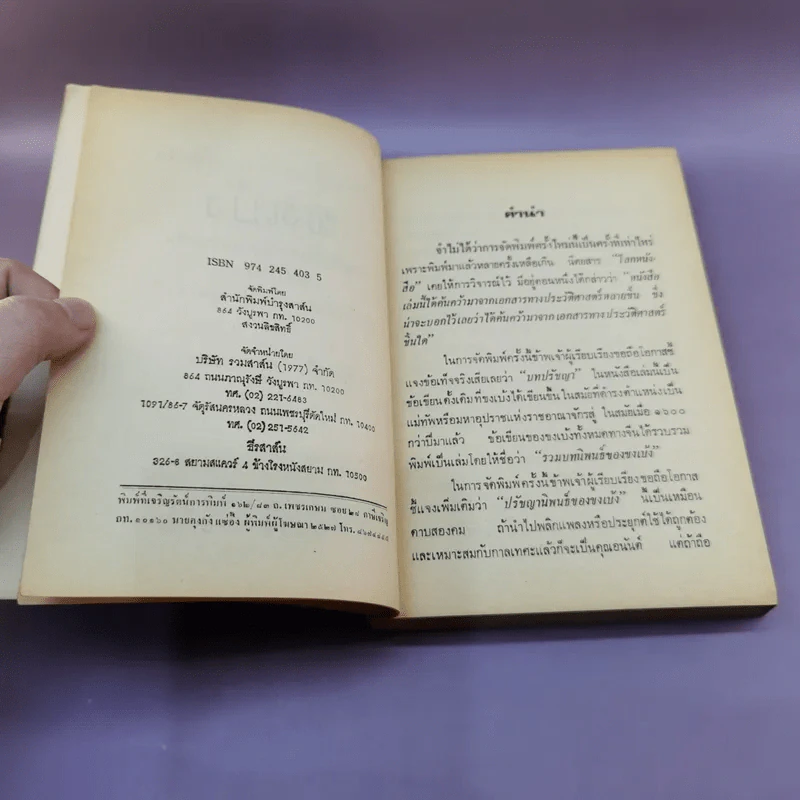 ISBN 974 245 403 5
จัดพิมพ์โดย
สำนักพิมพ์บำรุงสาส์น
864 วังบูรพา กท. 10200
สงวนลิขสิทธิ์
จัดจำหน่ายโดย
บริษัท รวมสาส์น (1977) จำกัด
864 ถนนภาณุรังษี วังบูรพา กท. 10200
ทศ. (02) 221-6483
1091/86-7 จัตุรัสนครหลวง ถนนเพชรบุรีตัดใหม่ กท. 10400
ทศ. (02) 251-5642
ธีรสาส์น
326-8 สยามสแควร์ 4 ข้างโรงหนังสยาม กท. 10500
พิมพ์ที่เจริญรัตน์การพิมพ์ ๑๖๒/๘๓ ถ. เพชรเกษม ซอย ๒๘ ภาษีเจริญ
กท. ๑๐๑๖๐ นายคุงกัง แซ่อึ้ง ผู้พิมพ์ผู้โฆษณา ๒๕๒๗ โทร.
คำนำ
จำไม่ได้ว่าการจัดพิมพ์ครั้งใหม่นี้เป็นครั้งที่เท่าไหร่
เพราะพิมพ์มาแล้วหลายครั้งเหลือเกิน นิตยสาร “โลกหนัง-
สือ” เคยให้การวิจารณ์ไว้ มีอยู่ตอนหนึ่งได้กล่าวว่า “หนังสือ
เล่มนี้ได้ค้นคว้ามาจากเอกสารทางประวัติศาสตร์หลายชิ้น ซึ่ง
น่าจะบอกไว้เลยว่าได้ค้นคว้ามาจากเอกสารทางประวัติศาสตร์
ชิ้นใด”
ในการจัดพิมพ์ครั้งนี้ข้าพเจ้าผู้เรียบเรียงขอถือโอกาสชี้
แจงข้อเท็จจริงเสียเลยว่า “บทปรัชญา” ในหนังสือเล่มนี้เป็น
ข้อเขียนดั้งเดิมที่ขงเบ้งได้เขียนขึ้น ในสมัยที่ดำรงตำแหน่งเป็น
แม่ทัพหรือมหาอุปราชแห่งราชอาณาจักรสู่ ในสมัยเมื่อ ๑๖๐๐
กว่าปีมาแล้ว ข้อเขียนของขงเบ้งทั้งหมดทางจีนได้รวบรวม
พิมพ์เป็นเล่มโดยให้ชื่อว่า “รวมบทนิพนธ์ของขงเบ้ง”
ในการจัดพิมพ์ครั้งนี้ข้าพเจ้าผู้เรียบเรียงขอถือโอกาส
ชี้แจงเพิ่มเติมว่า “ปรัชญานิพนธ์ของขงเบ้ง” นี้เป็นเหมือน
ดาบสองคม ถ้านำไปพลิกแพลงหรือประยุกต์ใช้ได้ถูกต้อง
และเหมาะสมกับกาลเทศะแล้วก็จะเป็นคุณอนันต์ แต่ถ้าถือ